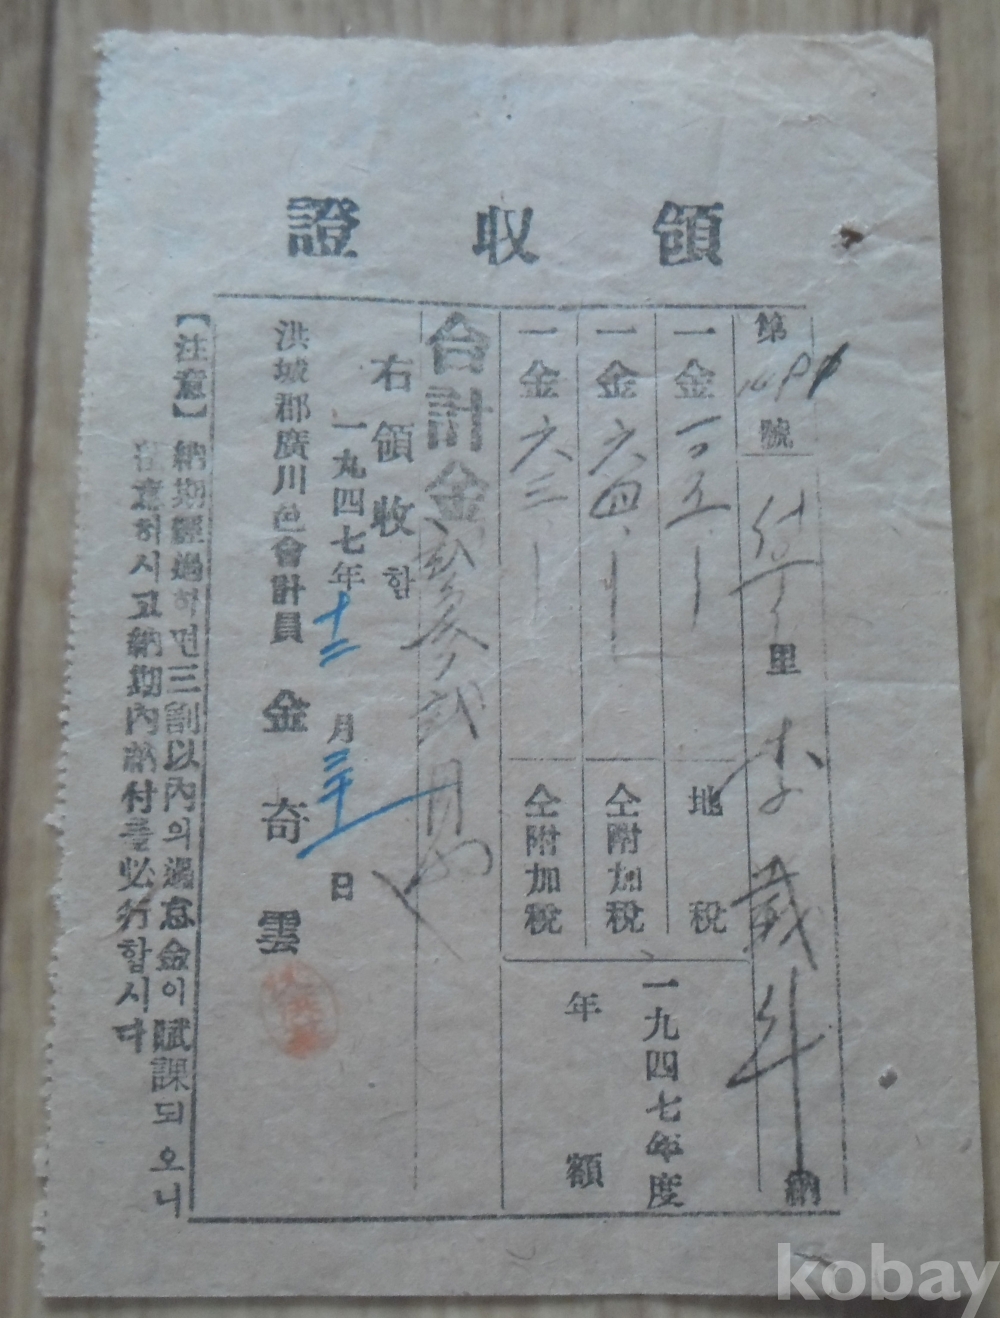 領收證
第 號 里 李 納
一金 一〇五 地稅
一金 六四 仝附加稅
一金 六三 仝附加稅
一九四七年度
年額
合計金
右領收함
一九四七年十二月三十日
洪城郡廣川邑會計員 金奇雲
【注意】納期經過하면三割以內의過怠金이賦課되오니
注意하시고納期內納付를必行합시다
kobay